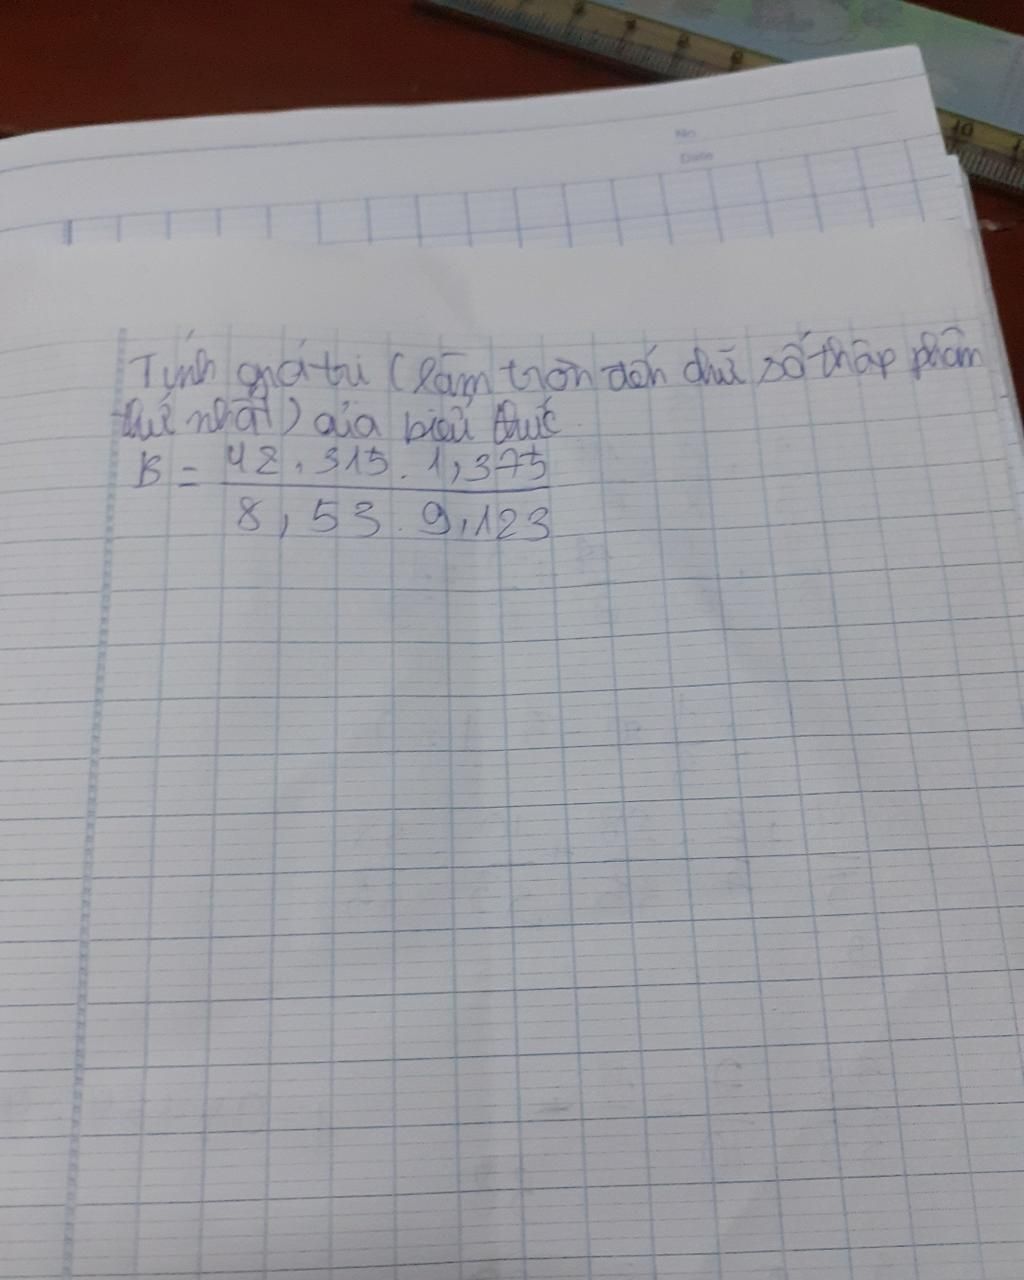 No
Date
10
Tính giá trị (làm tròn đến chữ số thập phân
thứ nhất) của biểu thức.
B = 42,315 . 1,375
8,53 . 9,123